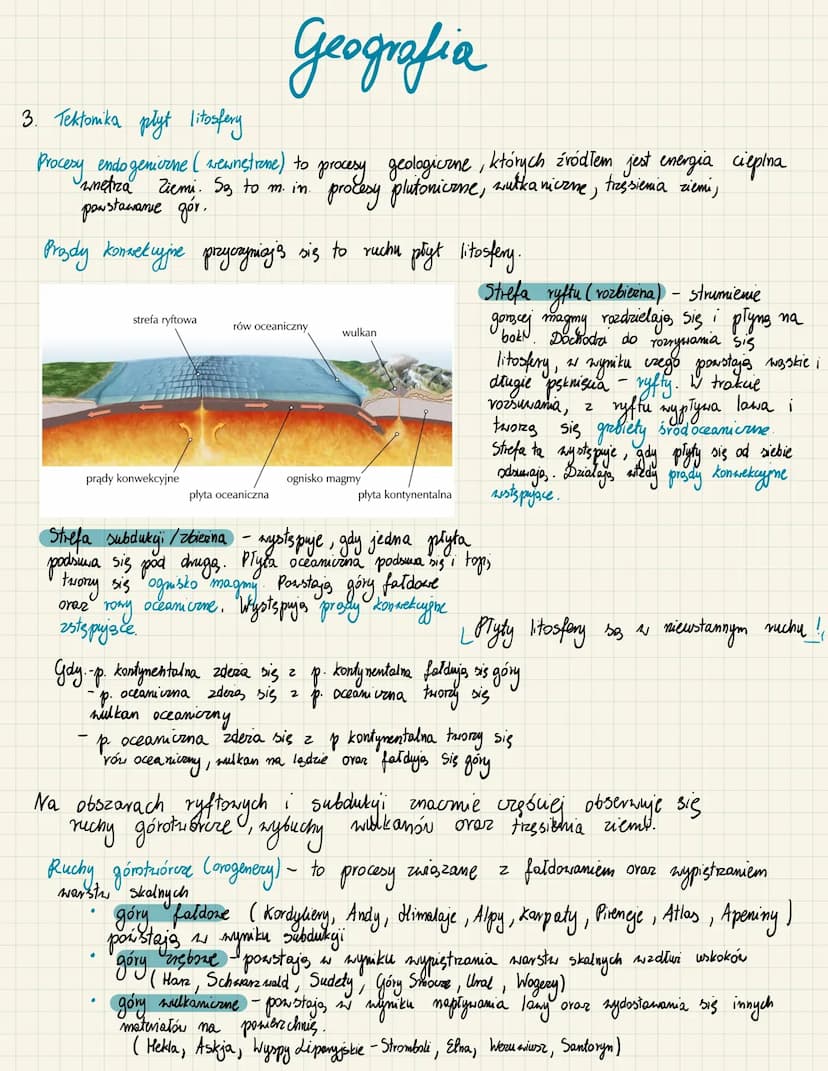 Geografia
3. Tektonika płyt litosfery
Procesy endogeniczne (wewnętrzne) to procesy geologiczne, których źródłem jest energia cieplna
wnętrza Ziemi. Są to m. in. procesy plutoniczne, wulkaniczne, trzęsienia ziemi,
powstawanie gór.
Prądy konwekcyjne przyczyniają się to ruchu płyt litosfery.
strefa ryftowa
rów oceaniczny
wulkan
prądy konwekcyjne
płyta oceaniczna
ognisko magmy
płyta kontynentalna
Strefa ryftu (rozbieżna) – strumienie
gorącej magmy rozdzielają się i płyną na
boki. Dochodzi do rozrywania się
litosfery, w wyniku czego powstają wąskie i
długie pęknięcia – ryfty. W trakcie
rozsuwania, z ryftu wypływa lawa i
tworzą się grzbiety śródoceaniczne.
Strefa ta występuje, gdy płyty się od siebie
odsuwają. Działają wtedy prądy konwekcyjne
wstępujące.
Strefa subdukcji/zbieżna – występuje, gdy jedna płyta
podsuwa się pod drugą. Płyta oceaniczna podsuwa się i topi,
tworzy się ognisko magmy. Powstają góry fałdowe
oraz rowy oceaniczne. Występują prądy konwekcyjne
zstępujące.
Płyty litosfery są w nieustannym ruchu!
Gdy: - p. kontynentalna zderza się z p. kontynentalną fałdują się góry
- p. oceaniczna zderza się z p. oceaniczna tworzy się
wulkan oceaniczny
- p. oceaniczna zderza się z p kontynentalna tworzy się
rów oceaniczny, wulkan na lądzie oraz fałdują się góry
Na obszarach ryftowych i subdukcji znacznie częściej obserwuje się
ruchy górotwórcze, wybuchy wulkanów oraz trzęsienia ziemi.
Ruchy górotwórcze (orogenezy) – to procesy związane z fałdowaniem oraz wypiętrzaniem
warstw skalnych
• góry fałdowe (Kordyliery, Andy, Himalaje, Alpy, Karpaty, Pireneje, Atlas, Apeniny)
powstają w wyniku subdukcji
• góry zrębowe – powstają w wyniku wypiętrzania warstw skalnych wzdłuż uskoków
(Harz, Schwarzwald, Sudety, Góry Smocze, Ural, Wogezy)
• góry wulkaniczne – powstają w wyniku napływania lawy oraz wydostawania się innych
materiałów na powierzchnię.
(Hekla, Askja, Wyspy Liparyjskie – Stromboli, Etna, Wezuwiusz, Santoryn)